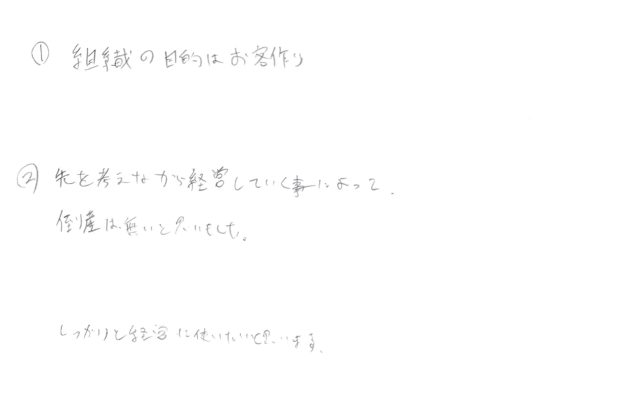 ① 組織の目的はお客作り
② 先を考えながら経営していく事によって、
倒産は無いと思いました。
しっかりと経営に使いたいと思います。